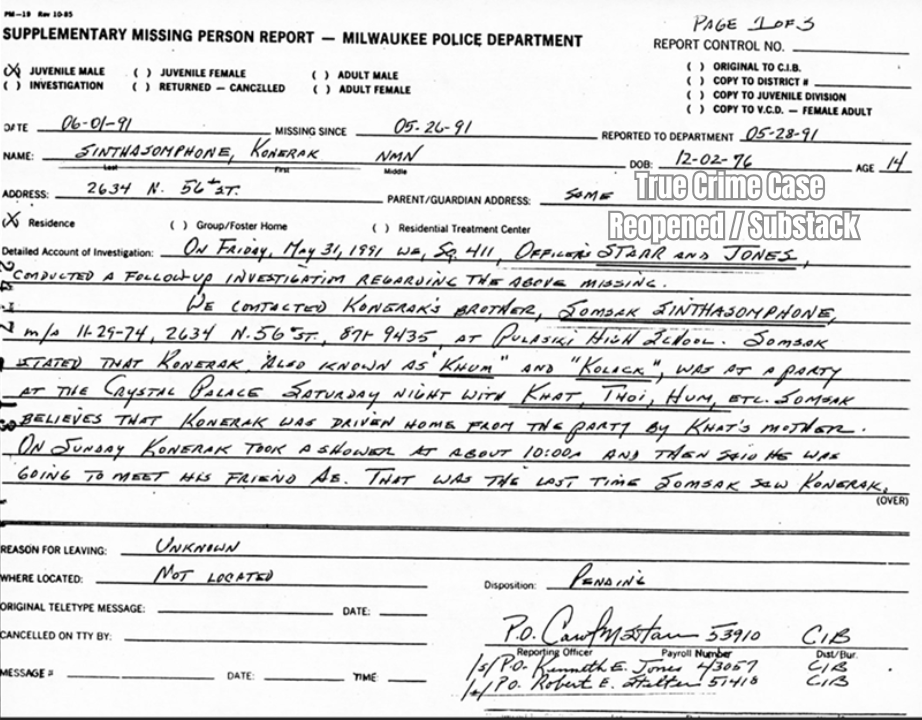 PM-19 Rev 10-85
PAGE 1 OF 3
SUPPLEMENTARY MISSING PERSON REPORT — MILWAUKEE POLICE DEPARTMENT
REPORT CONTROL NO.
(X) JUVENILE MALE ( ) JUVENILE FEMALE ( ) ADULT MALE
( ) INVESTIGATION ( ) RETURNED — CANCELLED ( ) ADULT FEMALE
( ) ORIGINAL TO C.I.B.
( ) COPY TO DISTRICT #
( ) COPY TO JUVENILE DIVISION
( ) COPY TO V.C.D. — FEMALE ADULT
DATE 06-01-91 MISSING SINCE 05-26-91 REPORTED TO DEPARTMENT 05-28-91
NAME: SINTHASOMPHONE, KONERAK NMN DOB: 12-02-76 AGE 14
Last First Middle
ADDRESS: 2634 N. 56th ST. PARENT/GUARDIAN ADDRESS: SAME
True Crime Case
Reopened / Substack
(X) Residence ( ) Group/Foster Home ( ) Residential Treatment Center
Detailed Account of Investigation: ON FRIDAY, MAY 31, 1991 WE, SQ. 411, OFFICERS STARR AND JONES,
CONDUCTED A FOLLOW-UP INVESTIGATION REGARDING THE ABOVE MISSING.
WE CONTACTED KONERAK'S BROTHER, SOMSAK SINTHASOMPHONE,
m/a 11-29-74, 2634 N. 56th ST., 871-9435, AT PULASKI HIGH SCHOOL. SOMSAK
STATED THAT KONERAK, ALSO KNOWN AS "KHUM" AND "KOLACK", WAS AT A PARTY
AT THE CRYSTAL PALACE SATURDAY NIGHT WITH KHAT, THOI, HUM, ETC. SOMSAK
BELIEVES THAT KONERAK WAS DRIVEN HOME FROM THE PARTY BY KHAT'S MOTHER.
ON SUNDAY KONERAK TOOK A SHOWER AT ABOUT 10:00A AND THEN SAID HE WAS
GOING TO MEET HIS FRIEND AE. THAT WAS THE LAST TIME SOMSAK SAW KONERAK.
(OVER)
REASON FOR LEAVING: UNKNOWN
WHERE LOCATED: NOT LOCATED Disposition: PENDING
ORIGINAL TELETYPE MESSAGE: DATE:
CANCELLED ON TTY BY:
P.O. 53910 CIB
Reporting Officer Payroll Number Dist/Bur.
MESSAGE # DATE: TIME:
/s/ P.O. Kenneth E. Jones 43057 CIB
/s/ P.O. Robert E. 51418 CIB